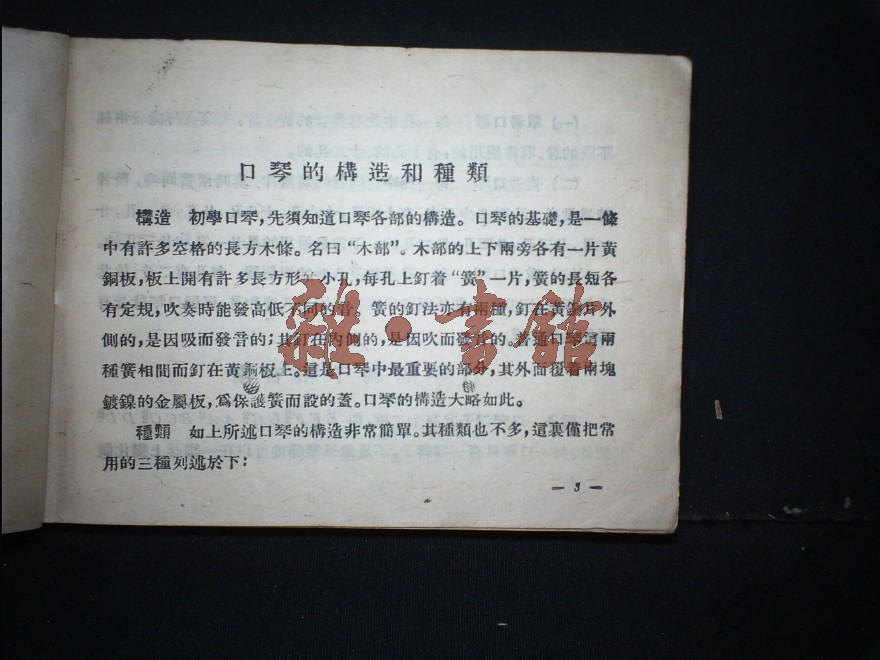 口琴的構造和種類
構造 初學口琴，先須知道口琴各部的構造。口琴的基礎，是一條
中有許多空格的長方木條。名曰“木部”。木部的上下兩旁各有一片黃
銅板，板上開有許多長方形的小孔，每孔上釘着“簧”一片，簧的長短各
有定規，吹奏時能發高低不同的音。簧的釘法亦有兩種，釘在黃銅片外
側的，是因吸而發音的；其釘在內側的，是因吹而發音的。普通口琴這兩
種簧相間而釘在黃銅板上。這是口琴中最重要的部分，其外面覆着兩塊
鍍鎳的金屬板，爲保護簧而設的蓋。口琴的構造大略如此。
種類 如上所述口琴的構造非常簡單。其種類也不多，這裏僅把常
用的三種列述於下：
— 3 —
雜·書館